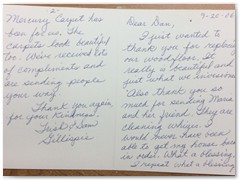 9-20-06
Dear Dan,
I just wanted to
thank you for replacing
our wood floors. It
really is beautiful and
just what we envisioned.
Also thank you so
much for sending Maria
and her friend. They are
cleaning whizes. I
would never have been
able to get my house back
in order. What a blessing.
I repeat what a blessing
2
Mercury Carpet has
been for us. The
carpets look beautiful
too. We've received lots
of compliments and
are sending people
your way.
Thank you again
for your kindness.
Trish & Dan
Gillispie